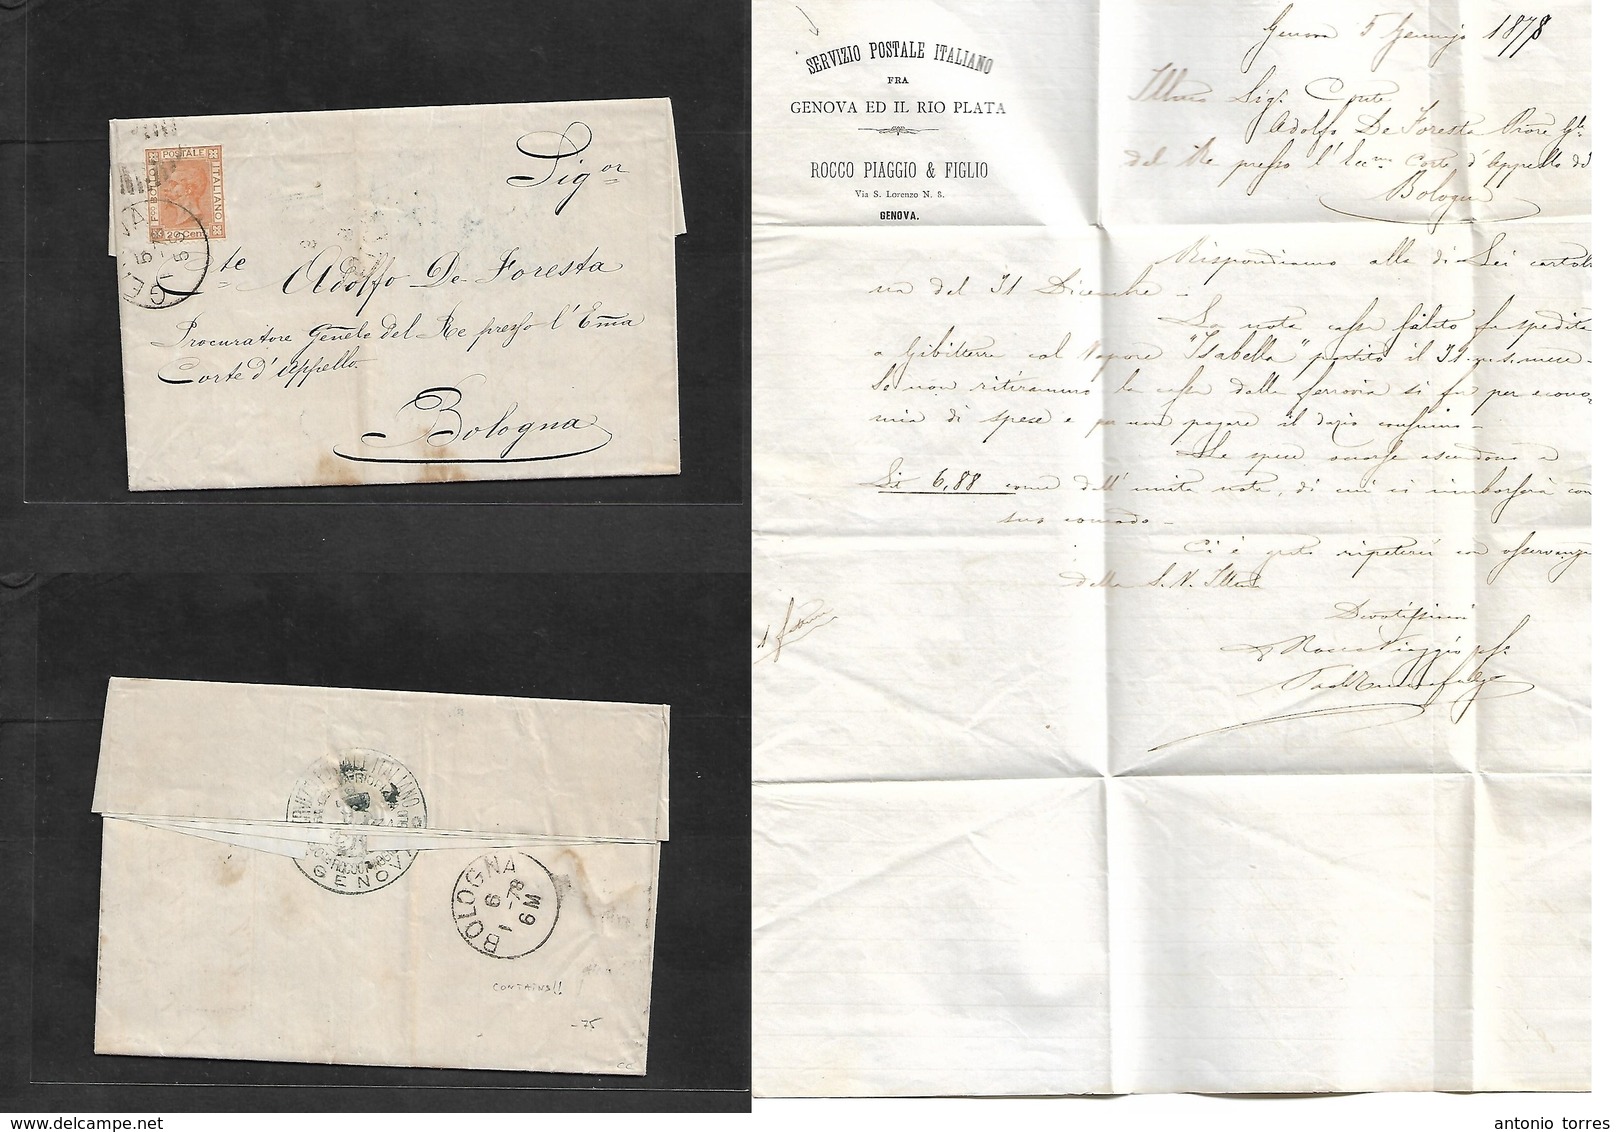 POSTALE
ITALIANO
F.co BOLLO
20 Cent
Sig.or
Cte Adolfo De Foresta
Procuratore Genele del Re presso l'Ema
Corte d'Appello.
Bologna
GENOVA
BOLOGNA
6
1 -78
6M
CONTAINS!!
-75
CC
SERVIZIO POSTALE ITALIANO
FRA
GENOVA ED IL RIO PLATA
ROCCO PIAGGIO & FIGLIO
Via S. Lorenzo N. 8.
GENOVA.
Genova 5 Gennajo 1878
Illmo Sig. Conte
Adolfo De Foresta Prore Gle
del Re presso l'Ecc.ma Corte d'Appello di
Bologna
Rispondiamo alla di Lei cartoli
na del 31 Dicembre -
La nota cassa fu spedita
a Gibilterra col Vapore "Isabella" partito il 31 mese -
Se non ritirammo la cassa dalla ferrovia si fu per econo
mia di spese e per non pagare il dazio consumo -
Le spese ascendono a
6,88 come dall'unita nota, di cui ci rimborserà con
suo comodo -
Ci è grato ripeterci con osservanza
della S. V. Illma
Devotissimi
Rocco Piaggio
antonio torres